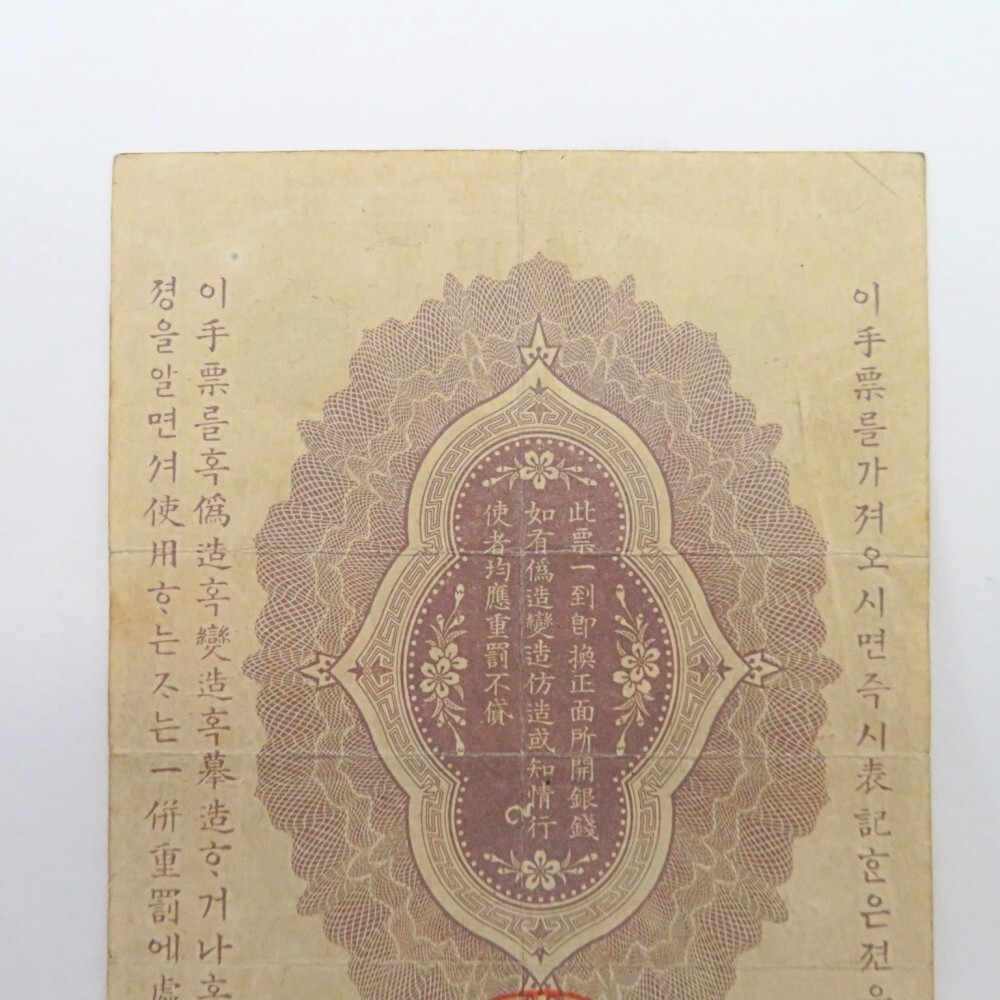 이手票를가져오시면즉시表記ᄒᆞᆫ은젼
此票一到卽換正面所開銀錢
如有僞造變造仿造或知情行
使者均應重罰不貸
이手票를혹僞造혹變造혹摹造ᄒᆞ거나혹
졍을알면셔使用ᄒᆞ는ᄌᆞ는一併重罰에處